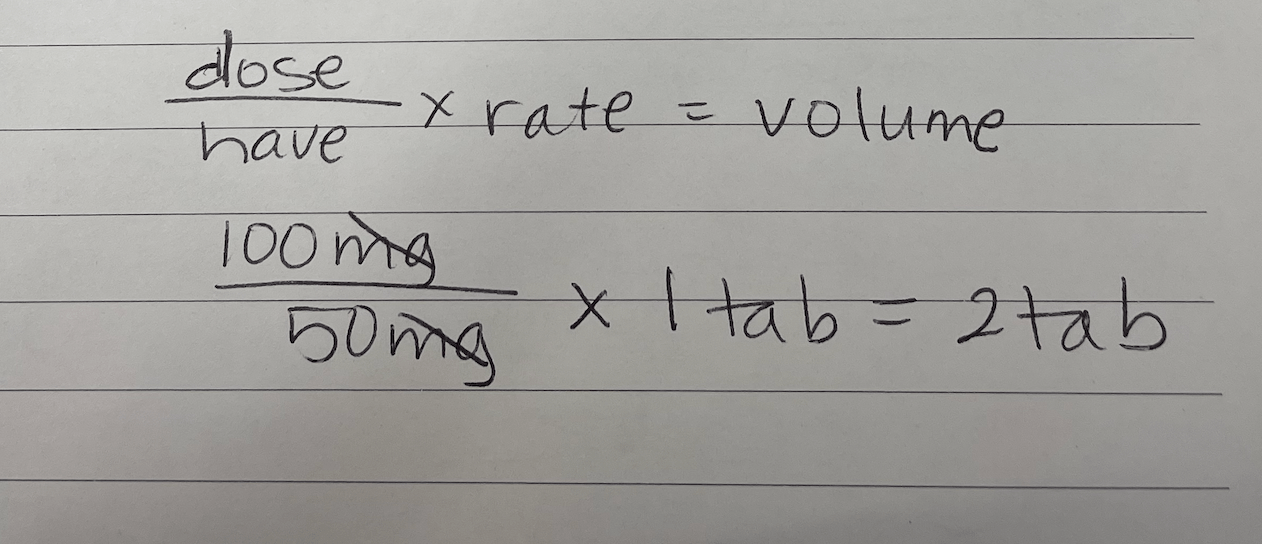 dose/have × rate = volume
100mg/50mg × 1 tab = 2 tab